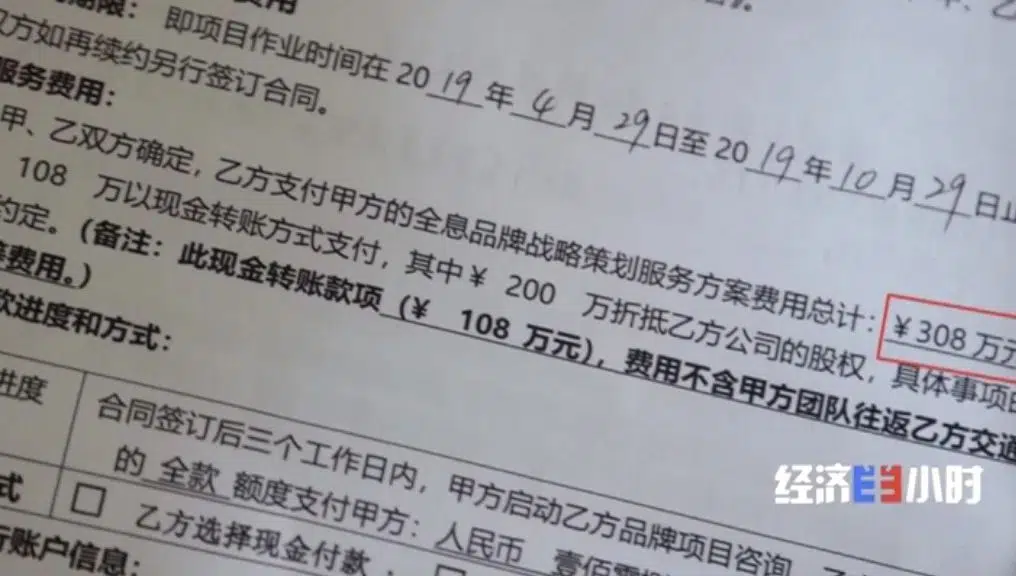 期限： 即项目作业时间在 2019 年 4 月 29 日至 2019 年 10 月 29 日止
双方如再续约另行签订合同。
服务费用：
甲、乙双方确定，乙方支付甲方的全息品牌战略策划服务方案费用总计：¥308 万元
108 万以现金转账方式支付，其中¥ 200 万折抵乙方公司的股权，具体事项
约定。（备注：此现金转账款项（¥ 108 万元），费用不含甲方团队往返乙方交通
费用。）
款进度和方式：
进度
合同签订后三个工作日内，甲方启动乙方品牌项目咨询，乙
的 全款 额度支付甲方：人民币 壹佰零捌
式
□ 乙方选择现金付款，
行账户信息：
经济半小时